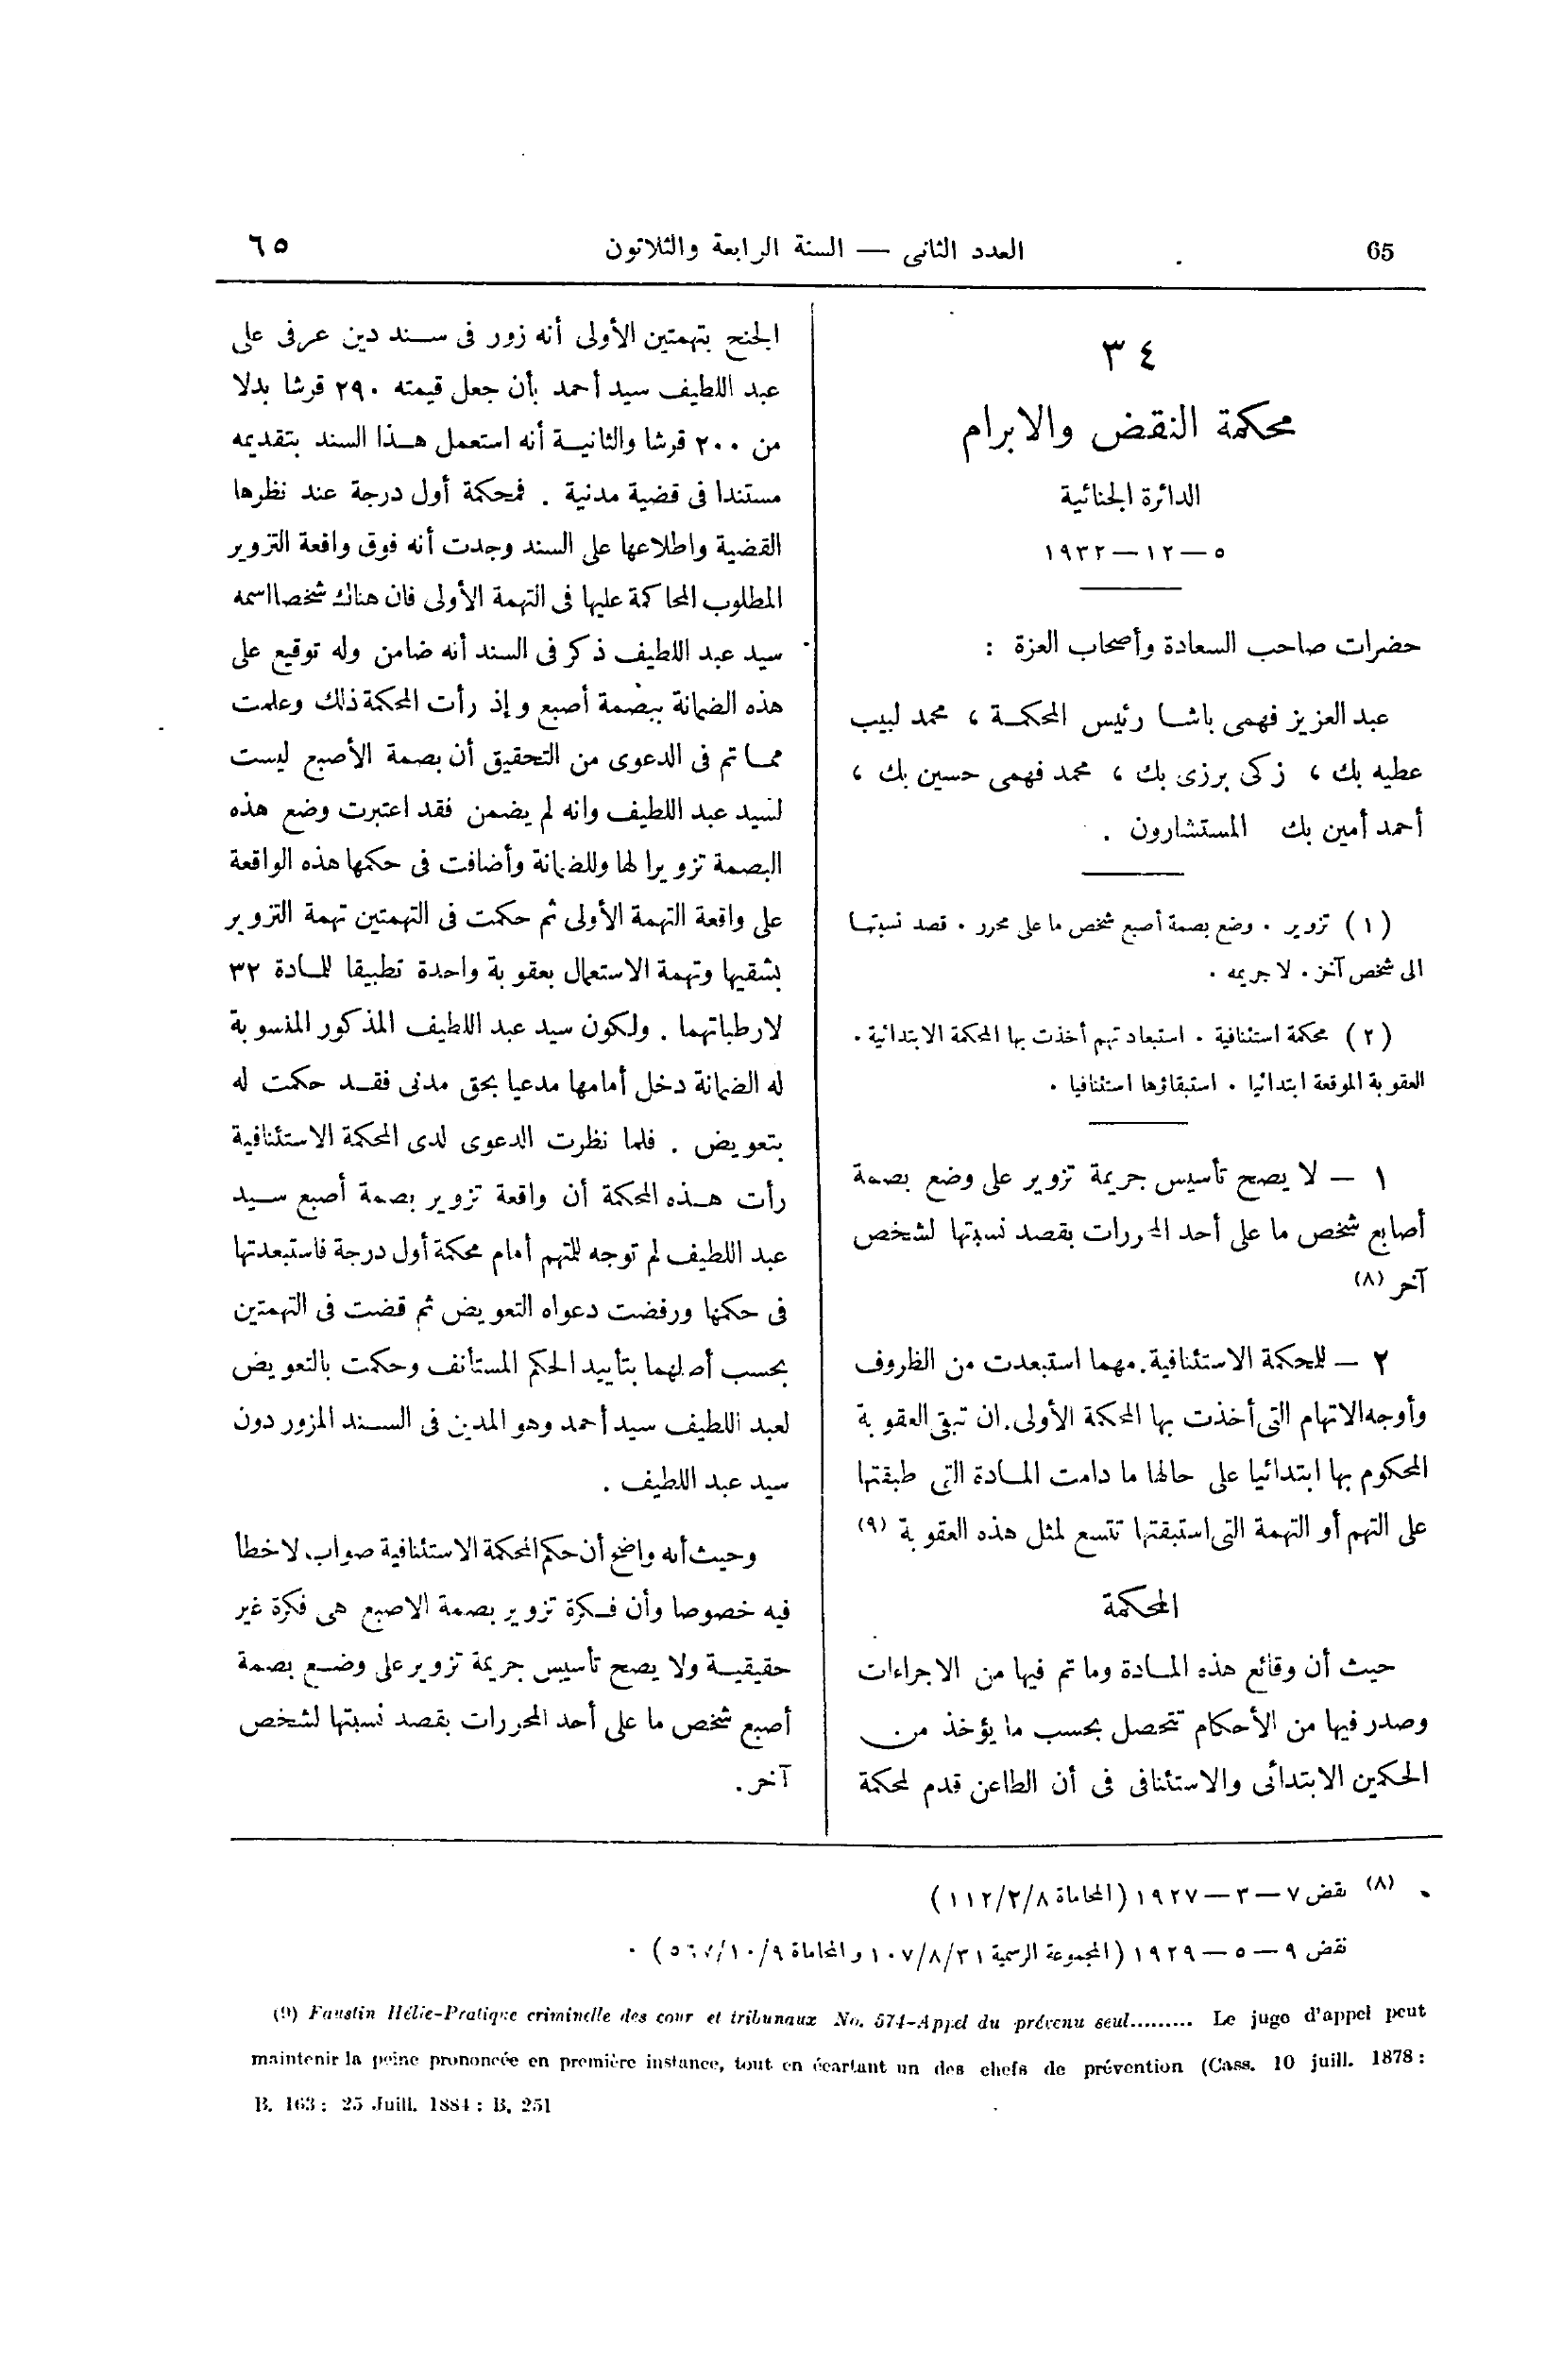 65
العدد الثانى — السنة الرابعة والثلاثون
٦٥
٣٤
محكمة النقض والابرام
الدائرة الجنائية
٥ — ١٢ — ١٩٣٢
حضرات صاحب السعادة وأصحاب العزة :
عبد العزيز فهمى باشا رئيس المحكمة ، محمد لبيب
عطيه بك ، زكى برزى بك ، محمد فهمى حسين بك ،
أحمد أمين بك المستشارون .
(١) تزوير . وضع بصمة أصبع شخص ما على محرر . قصد نسبتها
الى شخص آخر . لا جريمه .
(٢) محكمة استئنافية . استبعاد تهم أخذت بها المحكمة الابتدائية .
العقوبة الموقعة ابتدائيا . استبقاؤها استئنافيا .
١ — لا يصح تأسيس جريمة تزوير على وضع بصمة
أصابع شخص ما على أحد المحررات بقصد نسبتها لشخص
آخر (٨)
٢ — للمحكمة الاستئنافية . مهما استبعدت من الظروف
وأوجه الاتهام التى أخذت بها المحكمة الأولى . ان تبقى العقوبة
المحكوم بها ابتدائيا على حالها ما دامت المادة التى طبقتها
على التهم أو التهمة التى استبقتها تتسع لمثل هذه العقوبة (٩)
المحكمة
حيث أن وقائع هذه المادة وما تم فيها من الاجراءات
وصدر فيها من الأحكام تتحصل بحسب ما يؤخذ من
الحكمين الابتدائى والاستئنافى فى أن الطاعن قدم لمحكمة
الجنح بتهمتين الأولى أنه زور فى سند دين عرفى على
عبد اللطيف سيد أحمد بأن جعل قيمته ٢٩٠ قرشا بدلا
من ٢٠٠ قرشا والثانية أنه استعمل هذا السند بتقديمه
مستندا فى قضية مدنية . فمحكمة أول درجة عند نظرها
القضية واطلاعها على السند وجدت أنه فوق واقعة التزوير
المطلوب المحاكمة عليها فى التهمة الأولى فان هناك شخصا اسمه
سيد عبد اللطيف ذكر فى السند أنه ضامن وله توقيع على
هذه الضمانة ببصمة أصبع وإذ رأت المحكمة ذلك وعلمت
مما تم فى الدعوى من التحقيق أن بصمة الأصبع ليست
لسيد عبد اللطيف وانه لم يضمن فقد اعتبرت وضع هذه
البصمة تزويرا لها وللضمانة وأضافت فى حكمها هذه الواقعة
على واقعة التهمة الأولى ثم حكمت فى التهمتين تهمة التزوير
بشقيها وتهمة الاستعمال بعقوبة واحدة تطبيقا للمادة ٣٢
لارطباتهما . ولكون سيد عبد اللطيف المذكور المنسوبة
له الضمانة دخل أمامها مدعيا بحق مدنى فقد حكمت له
بتعويض . فلما نظرت الدعوى لدى المحكمة الاستئنافية
رأت هذه المحكمة أن واقعة تزوير بصمة أصبع سيد
عبد اللطيف لم توجه للمتهم أمام محكمة أول درجة فاستبعدتها
فى حكمها ورفضت دعواه التعويض ثم قضت فى التهمتين
بحسب أصلهما بتأييد الحكم المستأنف وحكمت بالتعويض
لعبد اللطيف سيد أحمد وهو المدين فى السند المزور دون
سيد عبد اللطيف .
وحيث أنه واضح أن حكم المحكمة الاستئنافية صواب لا خطا
فيه خصوصا وأن فكرة تزوير بصمة الاصبع هى فكرة غير
حقيقية ولا يصح تأسيس جريمة تزوير على وضع بصمة
أصبع شخص ما على أحد المحررات بقصد نسبتها لشخص
آخر .
(٨) نقض ٧ — ٣ — ١٩٢٧ (المحاماة ١١٢/٢/٨)
نقض ٩ — ٥ — ١٩٢٩ (المجموعة الرسمية ١٠٧/٨/٣١ و المحاماة ١٠/٩/) .
(9) Faustin Hélie-Pratique criminelle des cour et tribunaux No. 574-Appel du prévenu seul......... Le juge d'appel peut
maintenir la peine prononcée en première instance, tout en écartant un des chefs de prévention (Cass. 10 juill. 1878 :
B. 163 : 25 Juill. 1884 : B. 251